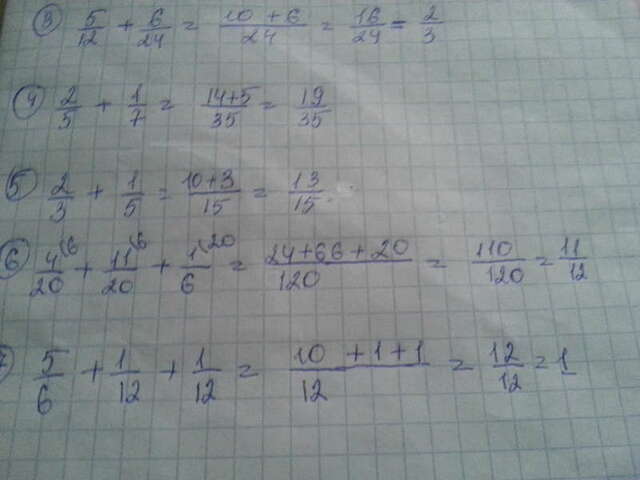 ③ 5/12 + 6/24 = (10 + 6)/24 = 16/24 = 2/3
④ 2/5 + 1/7 = (14+5)/35 = 19/35
⑤ 2/3 + 1/5 = (10+3)/15 = 13/15
⑥ 4/20 (6 + 11/20 (6 + 1/6 (20 = (24+66+20)/120 = 110/120 = 11/12
⑦ 5/6 + 1/12 + 1/12 = (10 + 1 + 1)/12 = 12/12 = 1